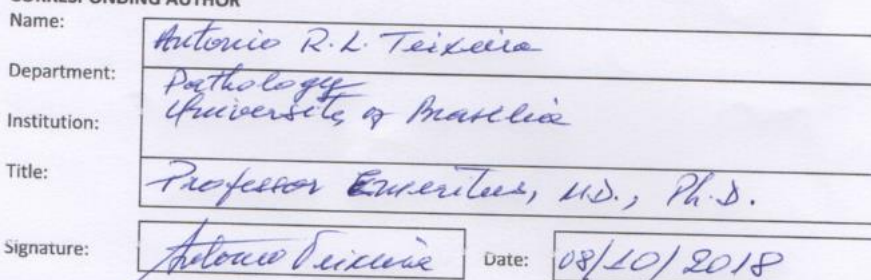 CORRESPONDING AUTHOR
Name: Antonio R. L. Teixeira
Department: Pathology
Institution: University of Brasilia
Title: Professor Emeritus, M.D., Ph.D.
Signature: Antonio Teixeira Date: 08/10/2018